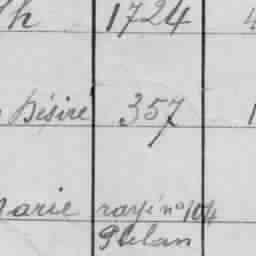 th 1724 4
Désiré 357 1
Marie rayé no 104
Plelan